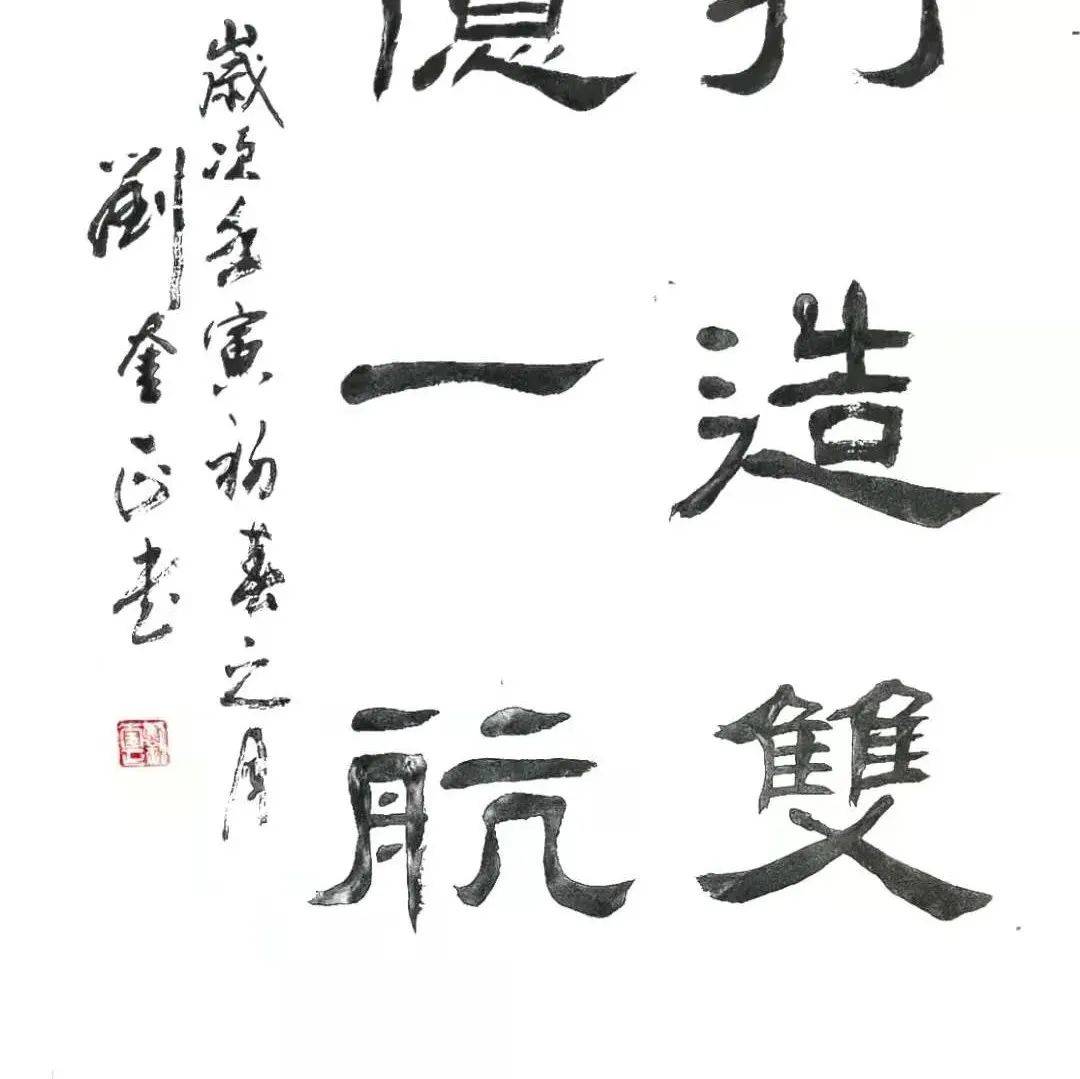 打造雙
一航
歲次壬寅初春之月
劉奎正書